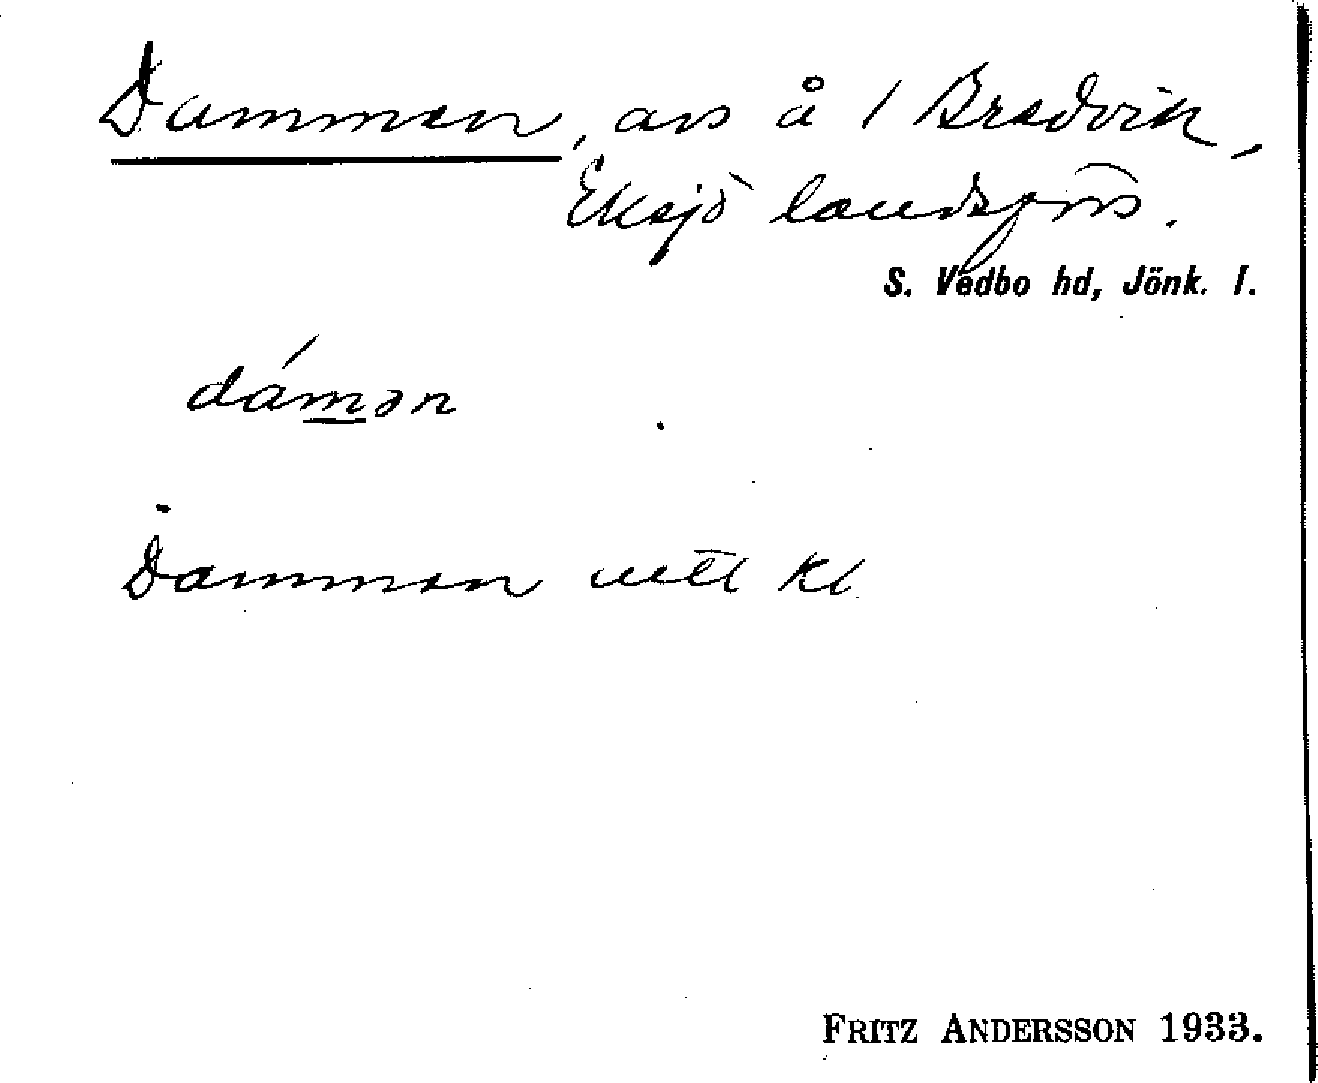 Dammen, avs å i Bredvik,
Eksjö landsförs.
S. Vedbo hd, Jönk. l.
dámən
Dammen utt kl
FRITZ ANDERSSON 1933.